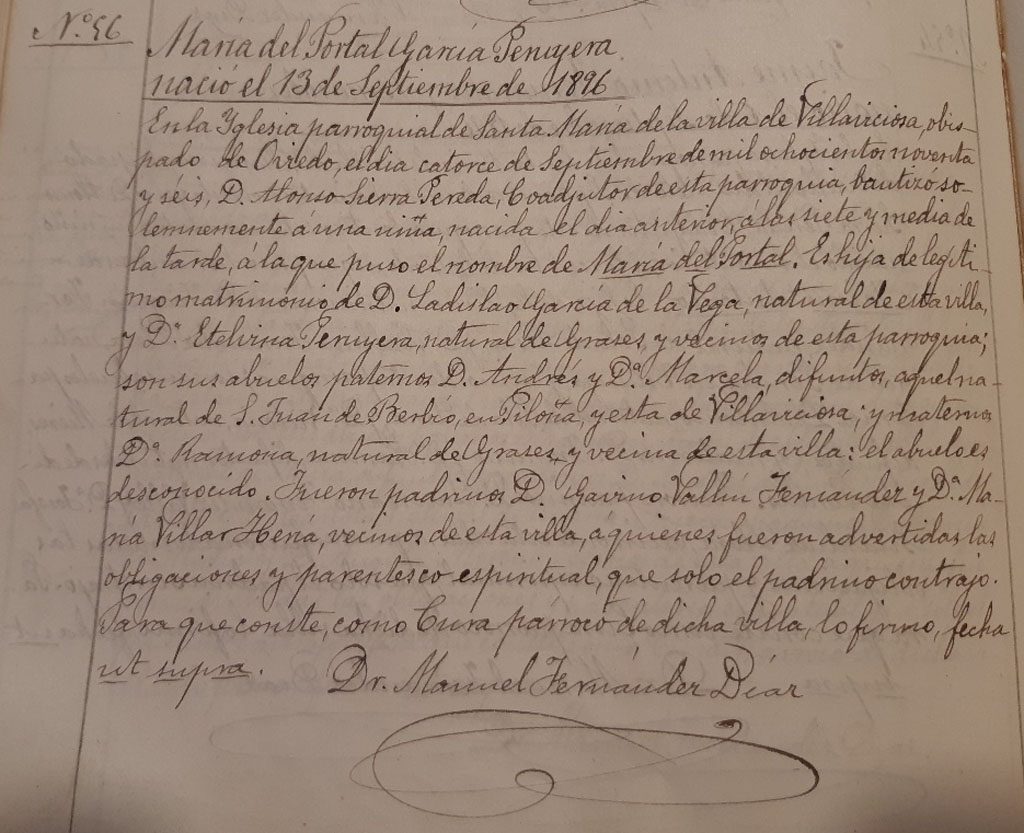 Nº. 56
María del Portal García Peruyera
nació el 13 de Septiembre de 1896
En la Yglesia parroquial de Santa María de la villa de Villaviciosa, obis-
pado de Oviedo, el dia catorce de Septiembre de mil ochocientos noventa
y séis, D. Alonso Sierra Pereda, Coadjutor de esta parroquia, bautizó so-
lemnemente á una niña, nacida el dia anterior, á las siete y media de
la tarde, á la que puso el nombre de María del Portal. Es hija de legíti-
mo matrimonio de D. Ladislao García de la Vega, natural de esta villa,
y Dª. Etelvina Peruyera, natural de Grases, y vecinos de esta parroquia;
son sus abuelos paternos D. Andrés y Dª. Marcela, difuntos, aquel na-
tural de S. Juan de Berbío, en Piloña, y esta de Villaviciosa; y maternos
Dª. Ramona, natural de Grases, y vecina de esta villa: el abuelo es
desconocido. Fueron padrinos D. Gavino Vallín Fernández y Dª. Ma-
ría Villar Hería, vecinos de esta villa, á quienes fueron advertidas las
obligaciones y parentesco espiritual, que solo el padrino contrajo.
Para que conste, como Cura párroco de dicha villa, lo firmo, fecha
ut supra.
Dr. Manuel Fernández Díaz